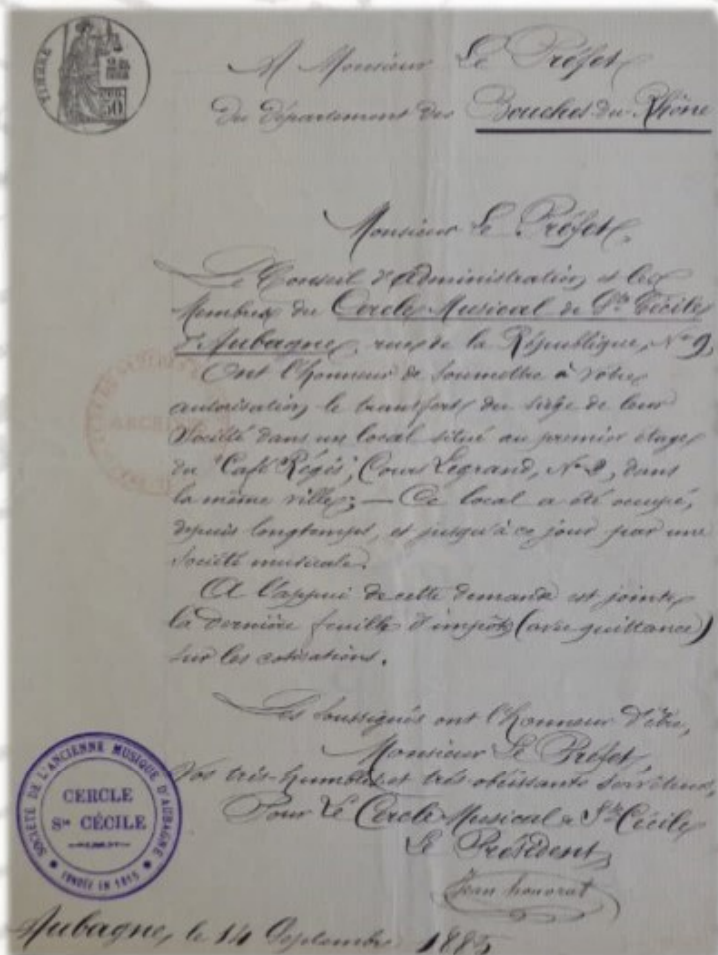 TIMBRE
50
A Monsieur Le Préfet
du département des Bouches-du-Rhône
Monsieur Le Préfet,
Le Conseil d'Administration et les
Membres du Cercle Musical de Ste Cécile
d'Aubagne, rue de la République, No 9,
Ont l'honneur de soumettre à votre
autorisation le transfert du siège de leur
Société dans un local situé au premier étage
du "Café Régis", Cours Legrand, No 2, dans
la même ville; — Ce local a été occupé,
depuis longtemps, et jusqu'à ce jour par une
Société musicale.
A l'appui de cette demande est jointe
la dernière feuille d'impôts (avec quittance)
sur les cotisations.
Les soussignés ont l'honneur d'être,
Monsieur Le Préfet,
Vos très-humbles et très-obéissants serviteurs,
Pour Le Cercle Musical Ste Cécile
Le Président,
Jean honorat
SOCIÉTÉ DE L'ANCIENNE MUSIQUE D'AUBAGNE
CERCLE
Ste CÉCILE
FONDÉE EN 1815
Aubagne, le 14 Septembre 1885